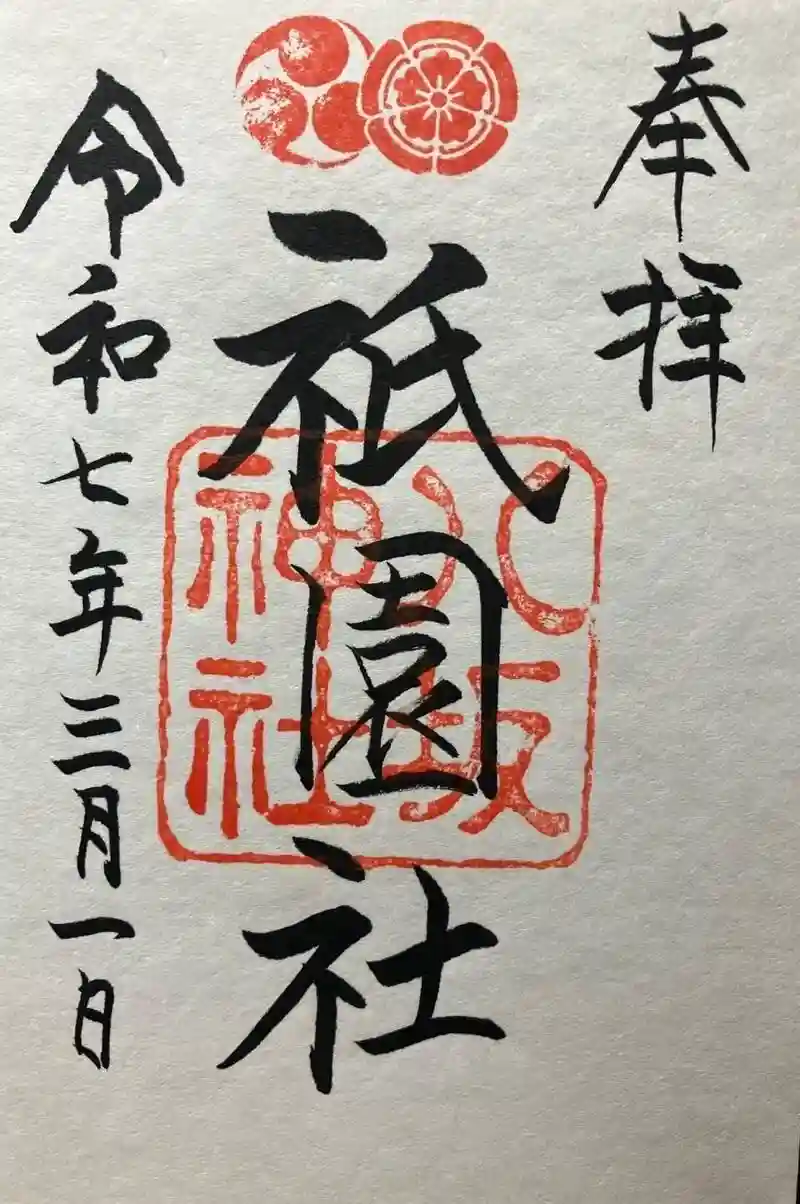 奉拝
祇園社
八坂
神社
令和七年三月一日